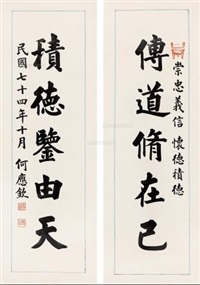 傳道脩在己
崇忠義信 懷德積德
積德鑒由天
民國七十四年十月 何應欽